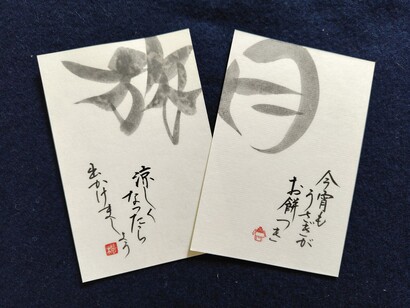 旅
涼しく
なったら
出かけましょう
月
今宵も
うさぎが
お餅つき